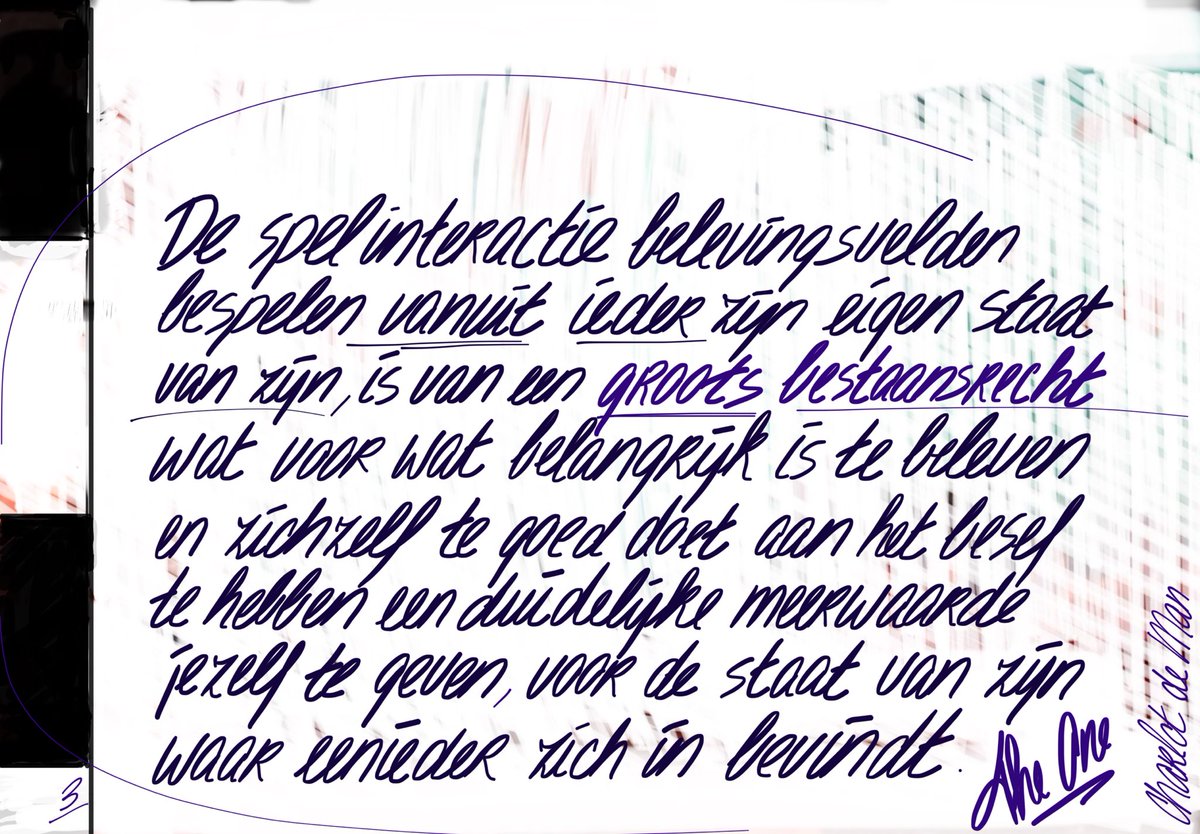 De spelinteractie belevingsvelden
bespelen vanuit ieder zijn eigen staat
van zijn, is van een groots bestaansrecht
wat voor wat belangrijk is te beleven
en zichzelf te goed doet aan het besef
te hebben een duidelijke meerwaarde
jezelf te geven, voor de staat van zijn
waar eenieder zich in bevindt.
The One
de Man
3